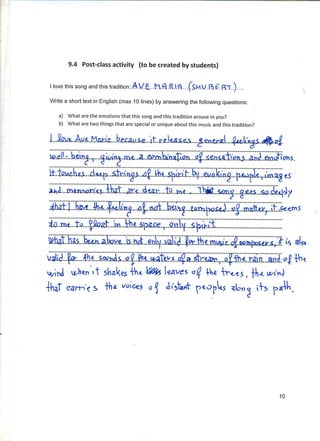 9.4 Post-class activity (to be created by students)
I love this song and this tradition: AVE MARIA (SHUBERT)
Write a short text in English (max 10 lines) by answering the following questions:
a) What are the emotions that this song and this tradition arouse in you?
b) What are two things that are special or unique about this music and this tradition?
I love Ave Marie because it releases general feelings of
well-being, giving me a combination of sensations and emotions.
It touches deep strings of the spirit by evoking people, images
and memories that are dear to me. This song goes so deeply
that I have the feeling of not being composed of matter, it seems
to me to float in the space, only spirit.
What has been above is not only valid for the music of composers, it is also
valid for the sounds of the waters of a stream, of the rain and of the
wind when it shakes the leaves of the trees, the wind
that carries the voices of distant peoples along its path.
10